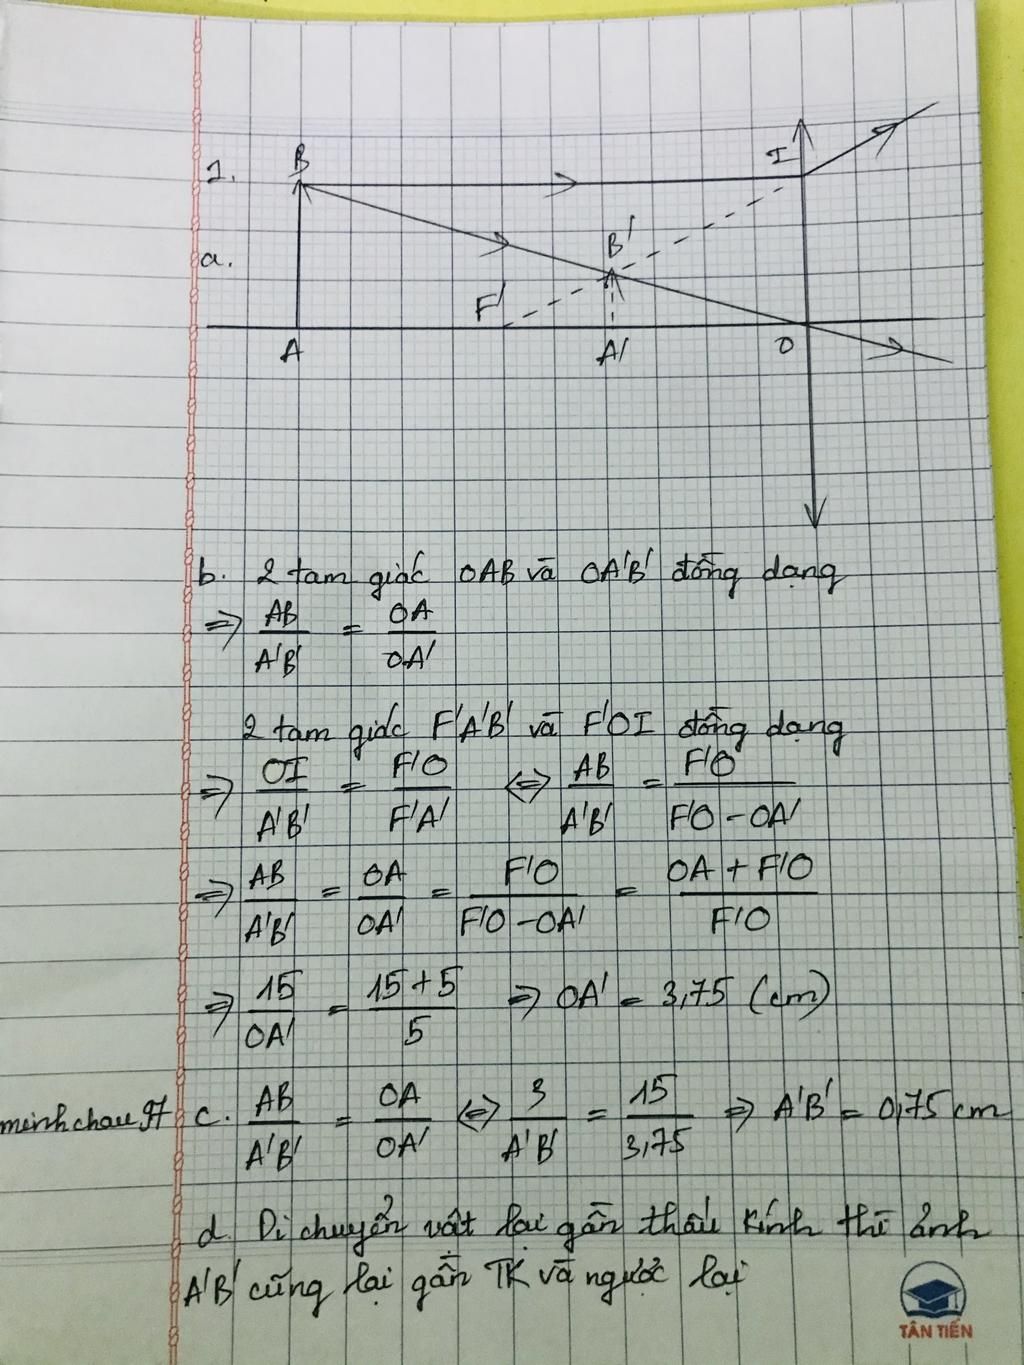 1.
B
I
a.
B'
F'
A
A'
O
b. 2 tam giác OAB và OA'B' đồng dạng
=> AB/A'B' = OA/OA'
2 tam giác F'A'B' và F'OI đồng dạng
=> OI/A'B' = F'O/F'A' <=> AB/A'B' = F'O/F'O - OA'
=> AB/A'B' = OA/OA' = F'O/F'O - OA' = OA + F'O/F'O
=> 15/OA' = 15+5/5 => OA' = 3,75 (cm)
minhchau97 c. AB/A'B' = OA/OA' <=> 3/A'B' = 15/3,75 => A'B' = 0,75 cm
d. Di chuyển vật lại gần thấu kính thì ảnh
A'B' cũng lại gần TK và ngược lại
TÂN TIẾN